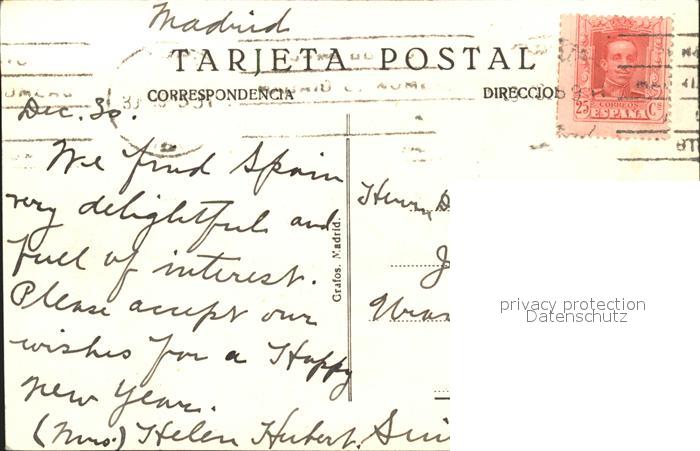 Madrid
TARJETA POSTAL
CORRESPONDENCIA
DIRECCION
CORREOS
25 ESPAÑA Cs
Dec. 30.
We find Spain
very delightful and
full of interest.
Please accept our
wishes for a Happy
New Year.
(Mrs.) Helen Hubert.
Grafos. Madrid.
Henry
privacy protection
Datenschutz